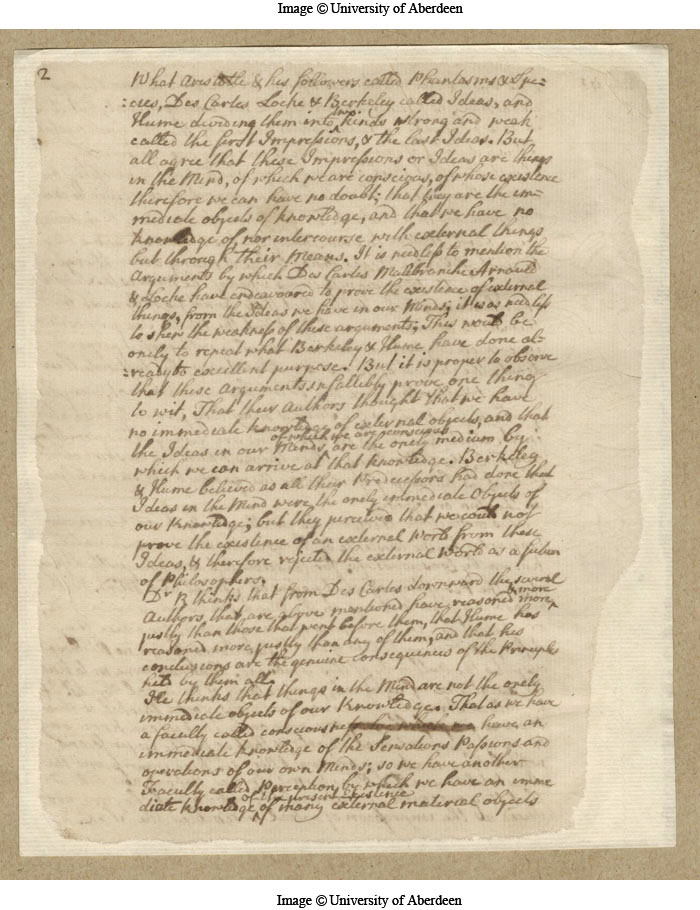 Image © University of Aberdeen
2
What Aristotle & his followers called Phantasms & Spe-
:cies, Des Cartes Locke & Berkeley called Ideas, and
Hume dividing them into two kinds strong and weak
called the first Impressions, & the last Ideas. But
all agree that these Impressions or Ideas are things
in the Mind, of which we are conscious, of whose existence
therefore we can have no doubt; that they are the im-
mediate objects of knowledge, and that we have no
knowledge of, nor intercourse with external things
but through their Means. It is needless to mention the
Arguments by which Des Cartes Malebranche Arnauld
& Locke have endeavoured to prove the existence of external
things, from the Ideas we have in our Minds; it was needless
to shew the weakness of these arguments; This would be
onely to repeat what Berkeley & Hume have done al-
:ready to excellent purpose. But it is proper to observe
that these Arguments infallibly prove one thing
to wit, That their Authors thought that we have
no immediate knowledge of external objects, and that
of which we are conscious
the Ideas in our Minds, are the onely medium by
which we can arrive at that knowledge. Berkeley
& Hume believed as all their Predecessors had done that
Ideas in the Mind were the onely immediate Objects of
our Knowledge; but they perceived that we could not
prove the existence of an external World from these
Ideas, & therefore rejected the external World as a fiction
of Philosophers.
Dr R thinks that from Des Cartes downward the several
Authors that are above mentioned have reasoned more & more
justly than those that went before them, that Hume has
reasoned more justly than any of them, and that his
conclusions are the genuine consequences of the Principles
held by them all.
He thinks that things in the Mind are not the onely
immediate objects of our Knowledge. That as we have
a faculty called consciousness we have an
immediate knowledge of the Sensations Passions and
operations of our own Minds; so we have another
Faculty called Perception by which we have an imme
of the present existence
diate knowledge of many external material objects
Image © University of Aberdeen